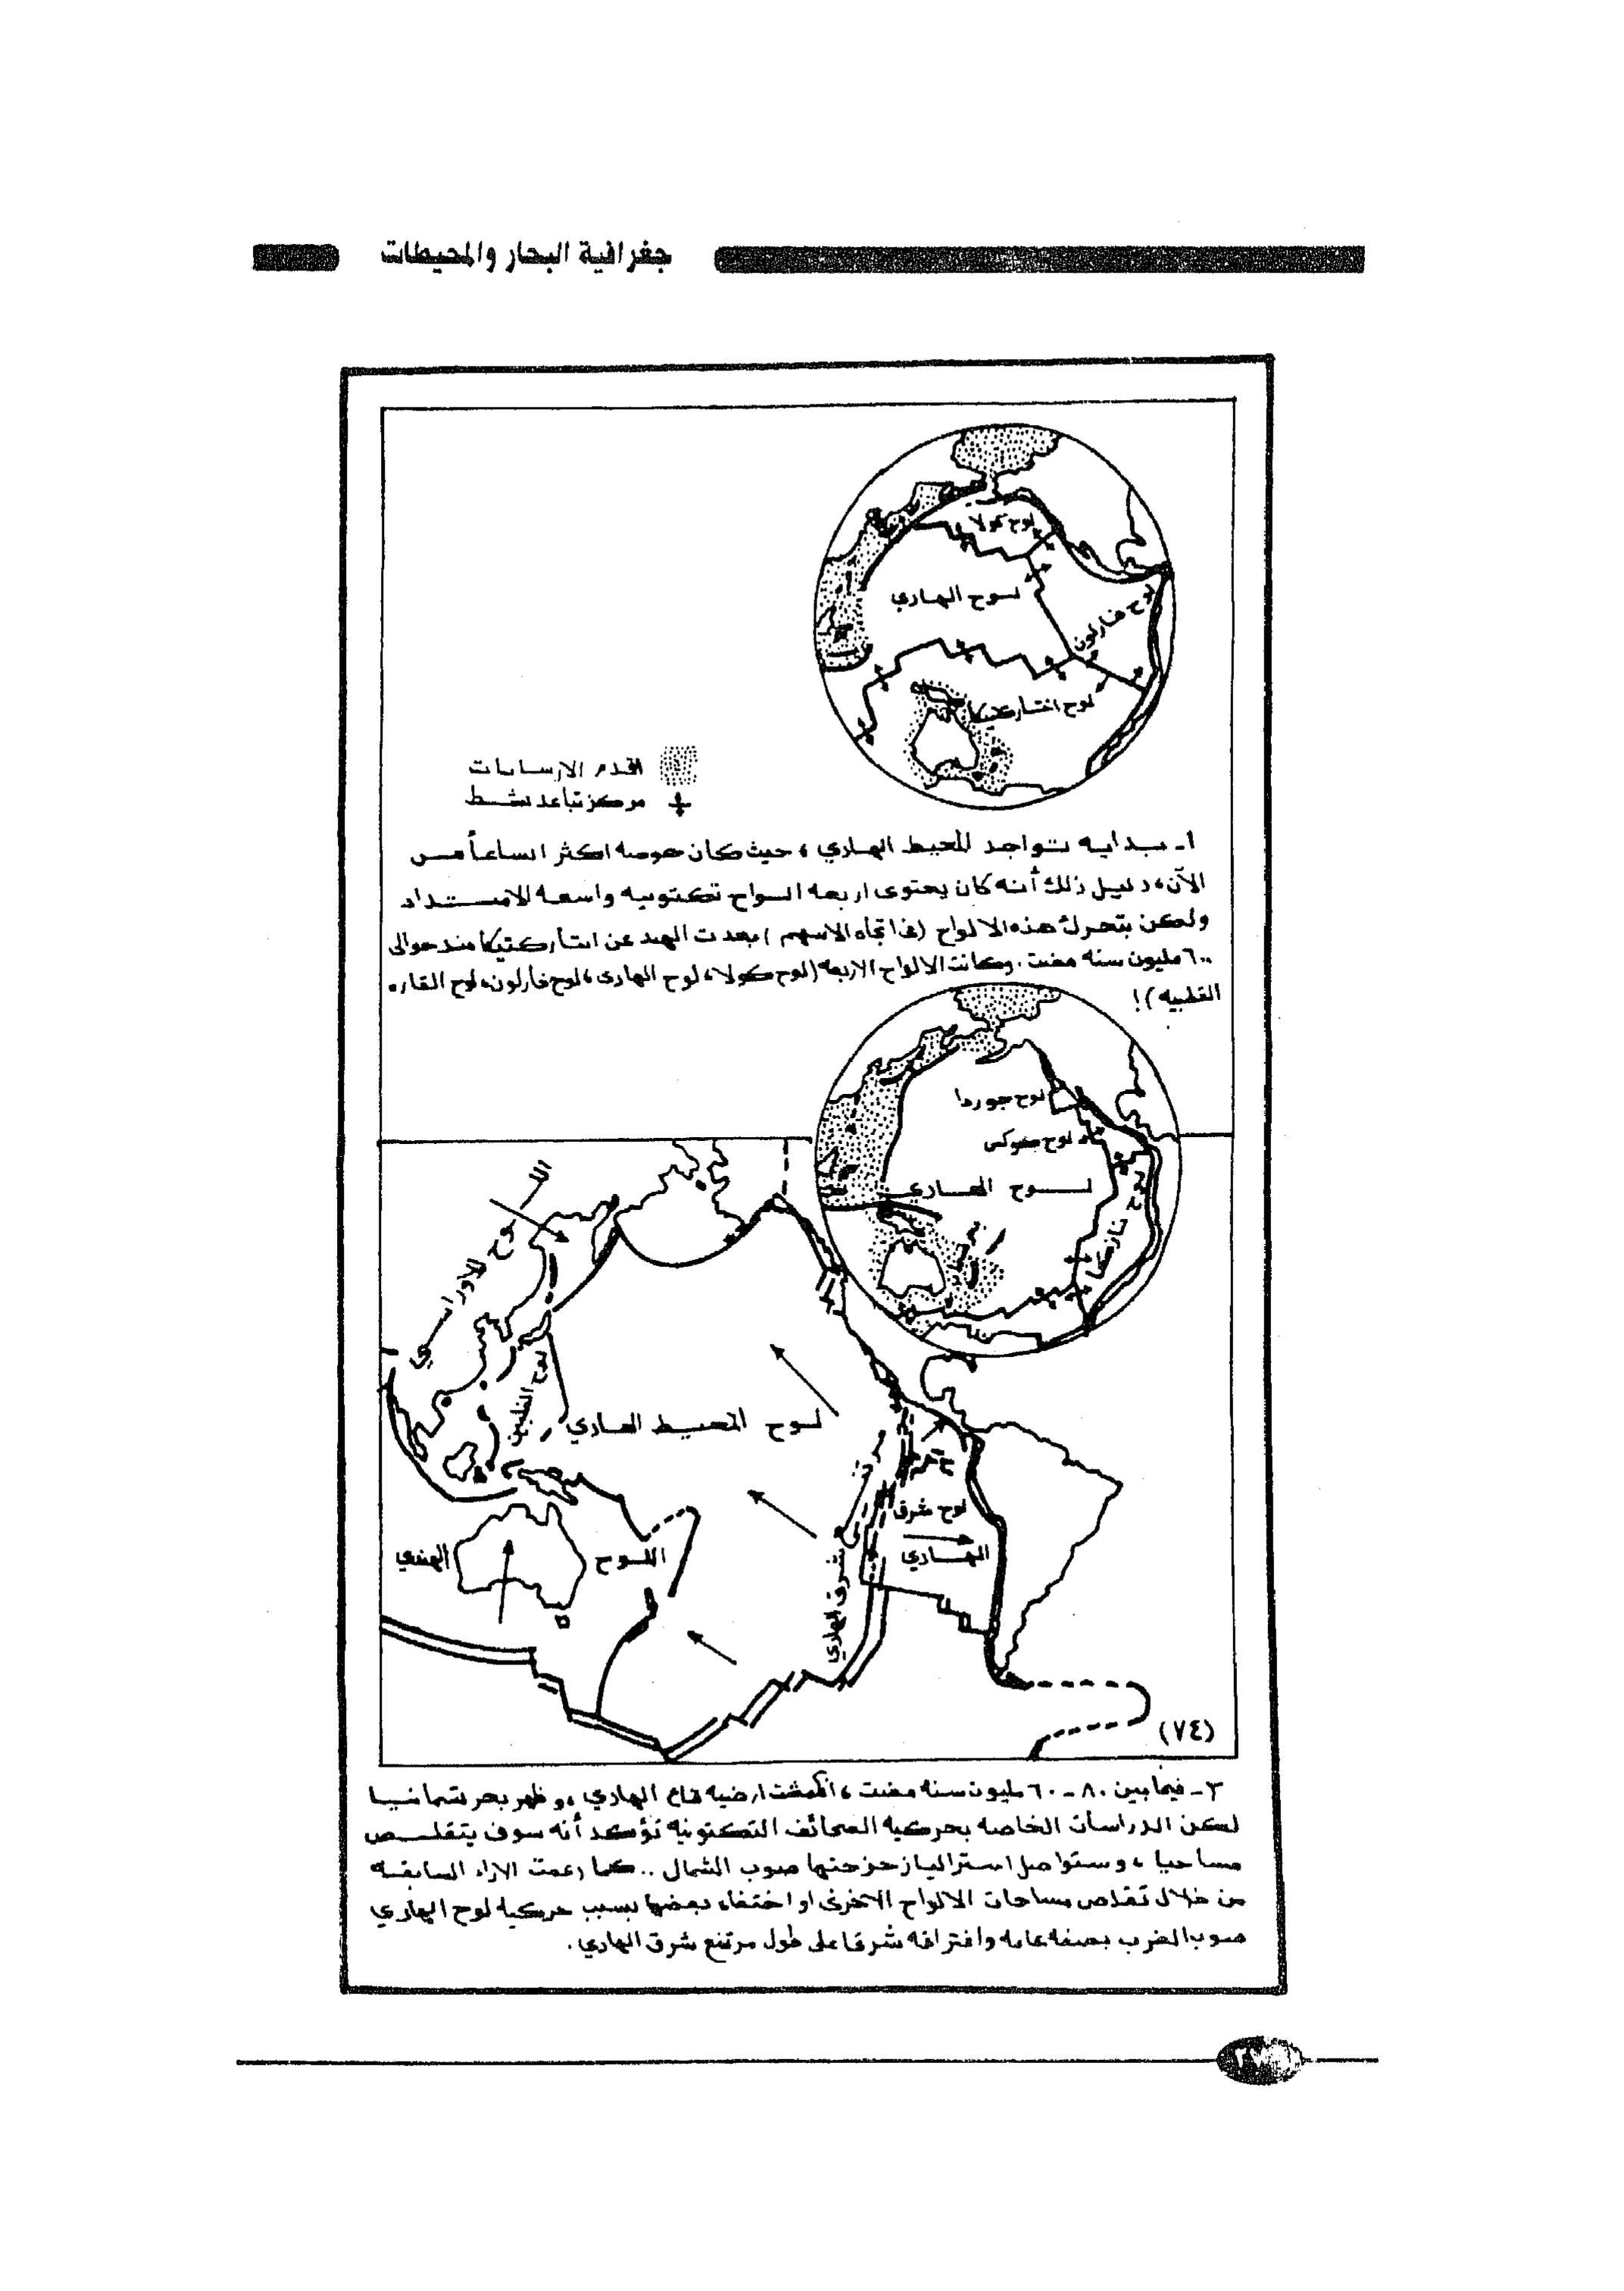 جغرافية البحار والمحيطات
لوح كولا
لوح الهادي
لوح فارلون
لوح انتاركتيكا
اقدم الارسابات
مركز تباعد نشط
١- بدايه تواجد المحيط الهادي، حيث كان حوضه اكثر اتساعاً من
الآن، دليل ذلك أنه كان يحتوى اربعه الواح تكتونيه واسعه الامتداد
ولكن بتحرك هذه الالواح (فى اتجاه الاسهم) بعدت الهند عن انتاركتيكا منذ حوالى
٦٠٠ مليون سنه مضت. وكانت الالواح الاربعه (لوح كولا، لوح الهادى، لوح فارلون، لوح القاره
القطبيه)!
لوح جوردا
لوح كوكس
لوح الهادي
لوح نازكا
اللوح الأوراسي
لوح الفلبين
لوح المحيط الهادي
لوح شرق
الهادي
مرتفع شرق الهادي
اللوح الهندي
(٧٤)
٣- فيما بين ٨٠-٦٠ مليون سنه مضت، انكمشت ارضيه قاع الهادي، وظهر بحر تسمانيا
لكن الدراسات الخاصه بحركيه الصحائف التكتونيه تؤكد أنه سوف يتقلص
مساحيا، وستواصل استراليا زحزحتها صوب الشمال .. كما زعمت الاراء السابقه
من خلال تقلص مساحات الالواح الاخرى او اختفاء بعضها بسبب حركية لوح الهادي
صوب الغرب بصفه عامه وافتراقه شرقا على طول مرتفع شرق الهادي.